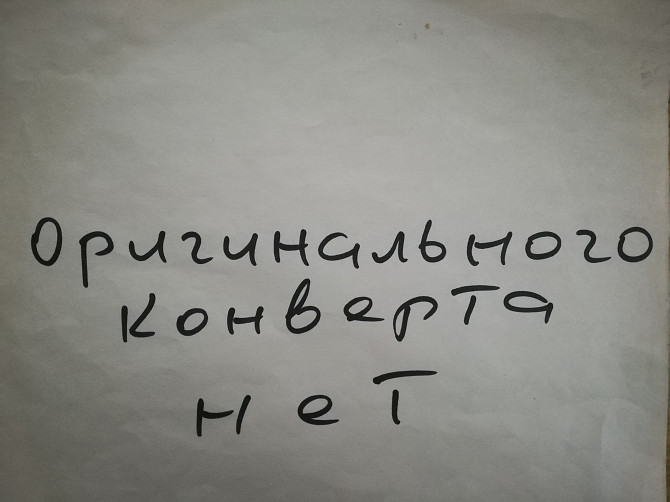 Оригинального
конверта
нет